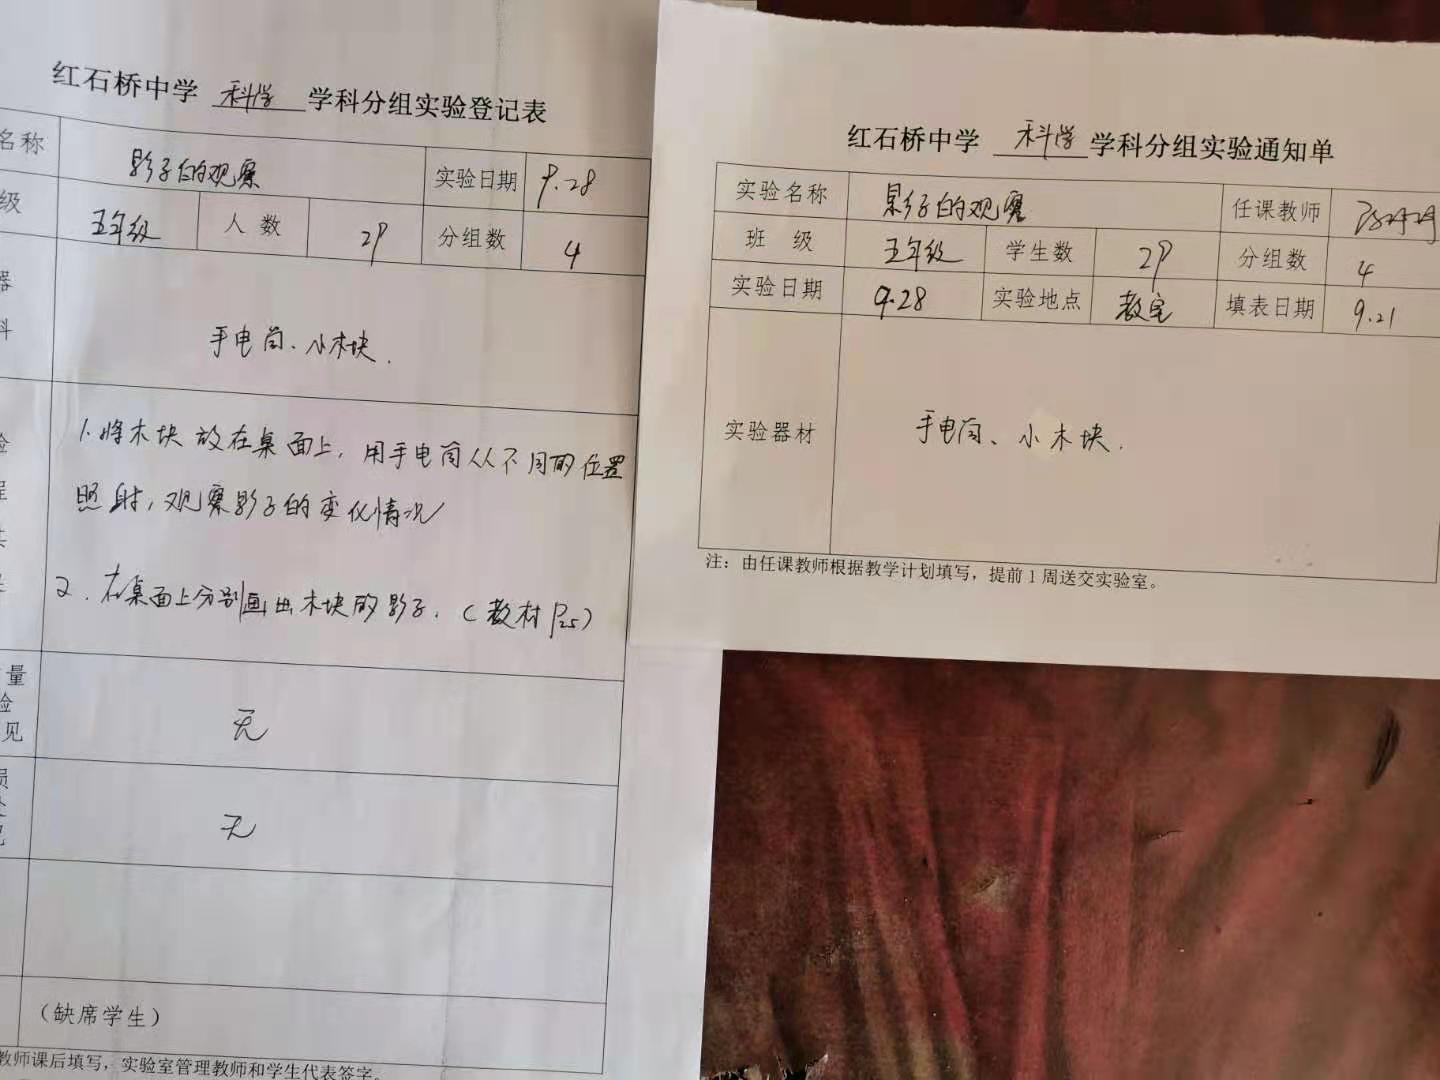 红石桥中学 科学 学科分组实验登记表
名称 影子的观察 实验日期 9.28
级 五年级 人数 29 分组数 4
器
料
手电筒、小木块.
1.将木块放在桌面上,用手电筒从不同的位置
照射,观察影子的变化情况
2.在桌面上分别画出木块的影子.(教材P25)
量
验
见
无
损
无
(缺席学生)
教师课后填写,实验室管理教师和学生代表签字。
红石桥中学 科学 学科分组实验通知单
实验名称 影子的观察 任课教师
班级 五年级 学生数 29 分组数 4
实验日期 9.28 实验地点 教室 填表日期 9.21
实验器材 手电筒、小木块.
注:由任课教师根据教学计划填写,提前1周送交实验室。